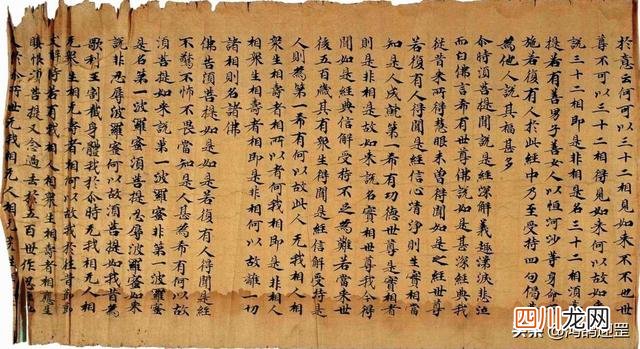 於意云何可以三十二相得見如來不不也世
尊不可以三十二相得見如來何以故如來
說三十二相即是非相是名三十二相須菩
提若有善男子善女人以恒河沙等身命布
施若復有人於此經中乃至受持四句偈
為他人說其福甚多
尒時須菩提聞說是經深解義趣涕淚悲泣
而白佛言希有世尊佛說如是甚深經典我
從昔來所得慧眼未曾得聞如是之經世尊
若復有人得聞是經信心清淨則生實相當
知是人成就第一希有功德世尊是實相者
則是非相是故如來說名實相世尊我今得
聞如是經典信解受持不足為難若當來世
後五百歲其有眾生得聞是經信解受持是
人則為第一希有何以故此人无我相人相
眾生相壽者相所以者何我相即是非相人
相眾生相壽者相即是非相何以故離一切
諸相則名諸佛
佛告須菩提如是如是若復有人得聞是經
不驚不怖不畏當知是人甚為希有何以故
須菩提如來說第一波羅蜜非第一波羅蜜
是名第一波羅蜜須菩提忍辱波羅蜜如來
說非忍辱波羅蜜何以故須菩提如我昔為
歌利王割截身體我於尒時无我相无人相
无眾生相无壽者相何以故我於往昔節節
支解時若有我相人相眾生相壽者相應生
瞋恨須菩提又念過去於五百世作忍辱
人於尒世无我相无人相
四川龙网